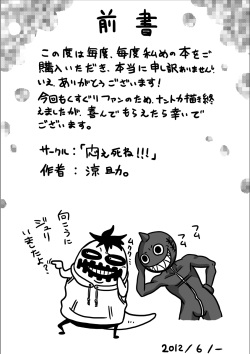 前書
この度は毎度、毎度私めの本をご
購入いただき、本当に申し訳ありません。
いえ、ありがとうございます！
今回もくすぐりファンのため、ナントカ描き終
えましたが、喜んでもらえたら幸いで
ございます。
サークル：「悶え死ね!!!」
作者：涼旦力。
向こうに
ジュリ
いましたよ？
ムクッ…
フム
フム
2012/6/-